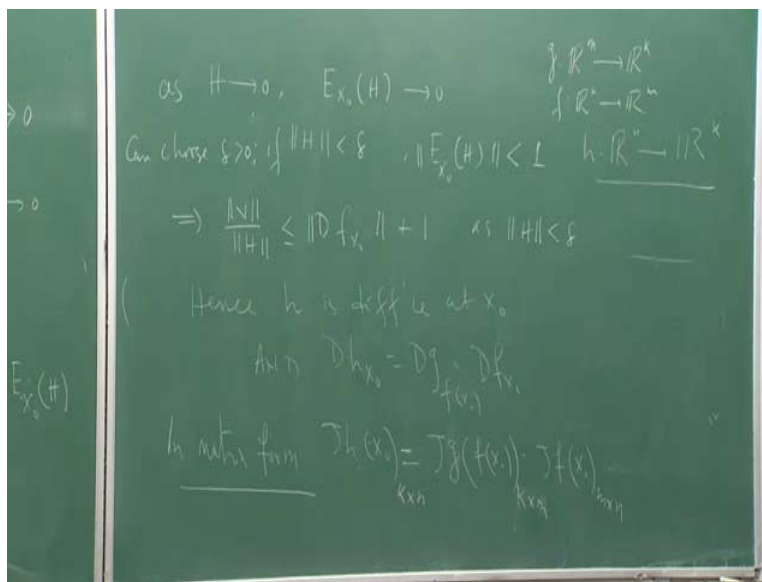 → 0
→ 0
E_{x_0}(H)
as H → 0, E_{x_0}(H) → 0
g: ℝ^m → ℝ^k
f: ℝ^n → ℝ^m
Can choose δ>0; if ||H|| < δ, ||E_{x_0}(H)|| < 1
h: ℝ^n → ℝ^k
⇒ ||V||/||H|| ≤ ||Df_{x_0}|| + 1 as ||H|| < δ
Hence h is diff'le at x_0
Dh_{x_0} = Dg_{f(x_0)} · Df_{x_0}
In matrix form Jh(x_0)_{k×n} = Jg(f(x_0))_{k×m} · Jf(x_0)_{m×n}